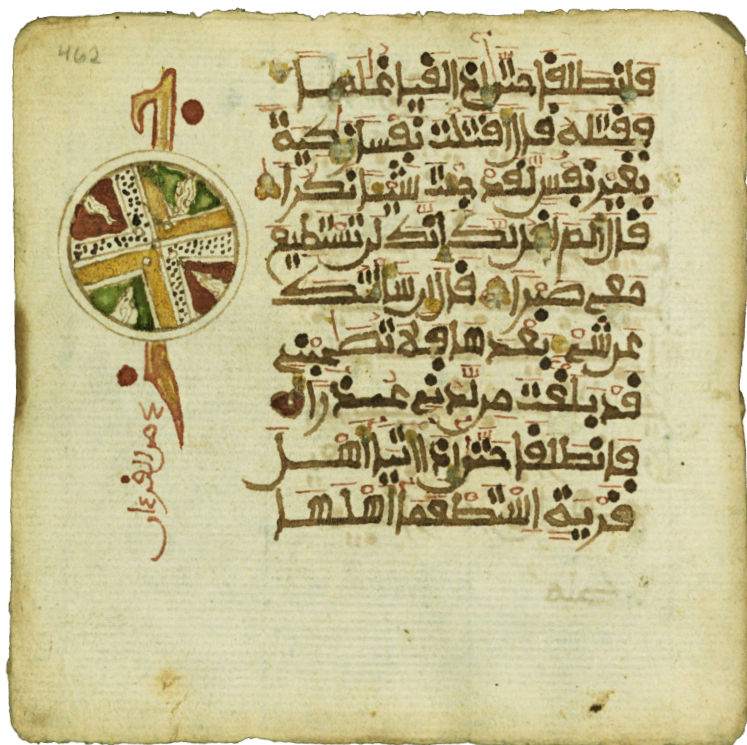 462
فانطلقا حتى إذا لقيا غلما
فقتله قال أقتلت نفسا زكية
بغير نفس لقد جئت شيئا نكرا
قال ألم أقل لك إنك لن تستطيع
معى صبرا قال إن سألتك
عن شىء بعدها فلا تصحبنى
قد بلغت من لدنى عذرا
فانطلقا حتى إذا أتيا أهل
قرية استطعما أهلها
من القرءان